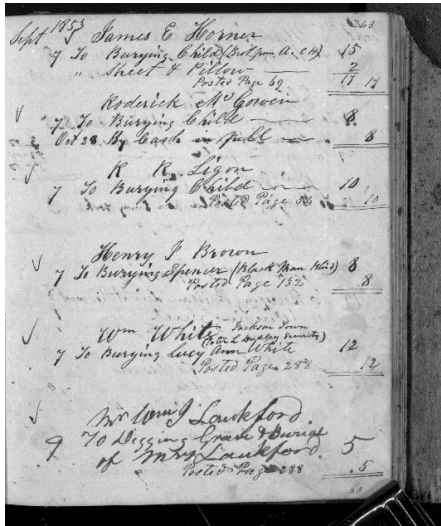 Sept 1853 263
James E Horner
7 To Burying Child (Bot from A. C H) 15
" Sheet & Pillow 2
Posted Page 69 17 17
Roderick McGowin
7 To Burying Child 8
Oct 28 By Cash in full 8
R R Ligon
7 To Burying Child 10
Posted Page 84 10
Henry J Brown
7 To Burying Spencer (Black Man Hired) 8
Posted Page 152 8
Wm White Jackson Town
7 To Burying Lucy Ann White 12
Posted Page 288 12
Mr Wm J Lankford
9 To Digging Grave & Burial
of Mrs Lankford 5
Posted Page 288 5
60